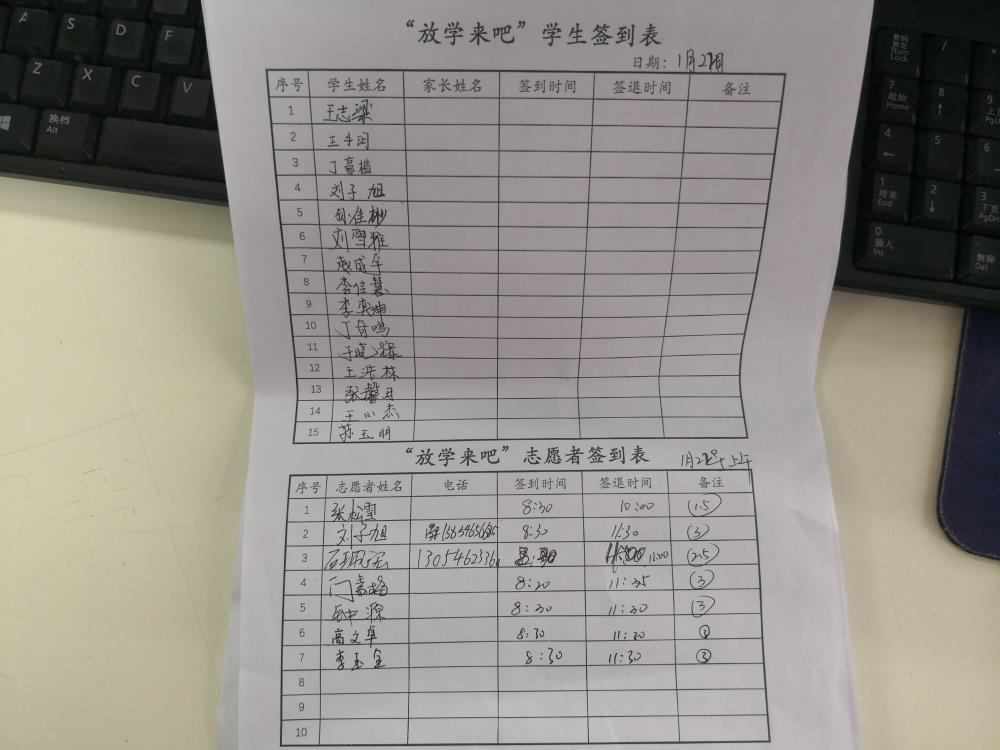 “放学来吧”学生签到表
日期：1月2
序号 学生姓名 家长姓名 签到时间 签退时间 备注
1 王志梁
2
3 丁嘉楷
4 刘子旭
5 佳彬
6 刘雪雅
7
8 李佳慧
9 李奕坤
10
11 于晓
12 王浩林
13 张馨月
14 王心杰
15 苏玉明
“放学来吧”志愿者签到表 1月2 上午
序号 志愿者姓名 电话 签到时间 签退时间 备注
1 张松雪 8:30 10:00 1.5
2 刘子旭 8:30 11:30 3
3 11:00 2.5
4 8:30 11:35 3
5 源 8:30 11:30 3
6 高文卓 8:30 11:30 3
7 李玉全 8:30 11:30 3
8
9
10
A S D F
Z X C V
换档
Alt
数码
锁定
Num
Lock
/
7
起始
Home
8
↑
9
4
←
5
6
1
结束
End
2
↓
3
下页
PgDn
0
插入
Ins
删除
Del